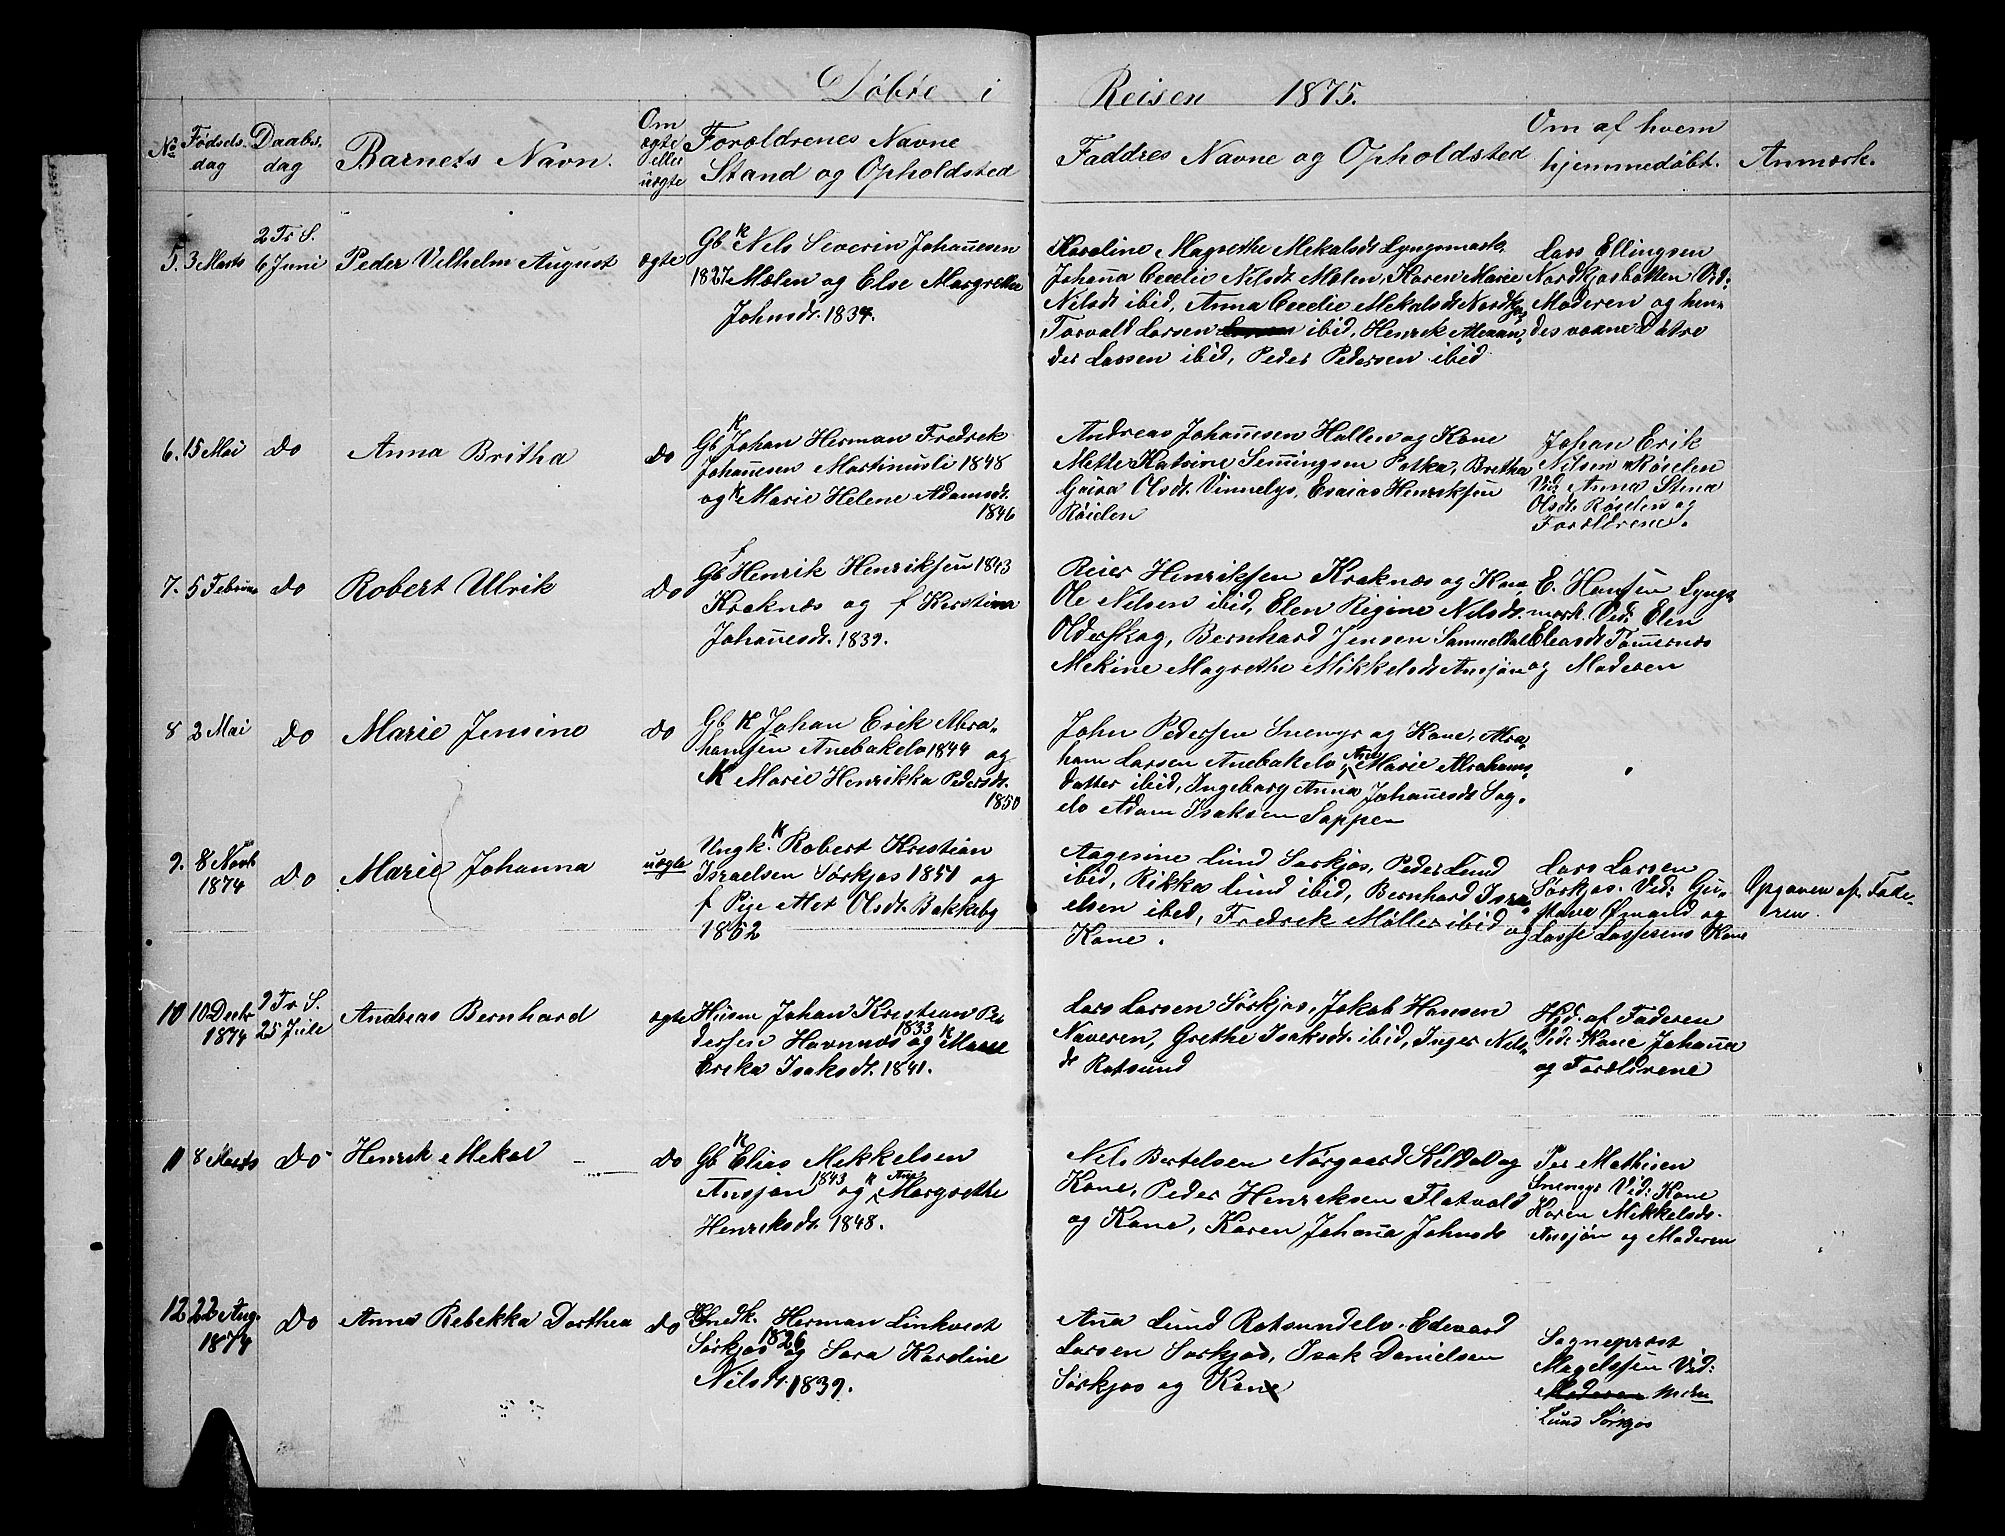 Døbte i Reisen 1875.
No Fødsels- dag
Daabs- dag
Barnets Navn.
Om ægte eller uægte
Forældrenes Navne
Stand og Opholdsted
Faddres Navne og Opholdsted
Om af hvem
hjemmedøbt.
Anmærk.
5. 3 Marts
2 Tr S.
6 Juni
Peder Vilhelm August
ægte
Gb. K Nels Severin Johannesen
1827 Mælen og Else Margrethe
Johnsdt. 1834.
Karoline Magrethe Mekalsdt Lyngsmark,
Johanna Cecelie Nilsdt Mælen, Karen Marie
Nilsdt ibid, Anna Cecelie Mekalsdt Nordkjos
Torvald Larsen ibid, Henrik Alexan-
der Lassen ibid, Peder Pedersen ibid
Lars Ellingsen
Nordkjosbotten Ved:
Moderen og hen-
des voxne Datre
6. 15 Mai
Do
Anna Britha
Do
Gb K Johan Herman Fredrek
Johannesen Martinusli 1848
og K Marie Helene Adamsdt.
1846
Andreas Johannesen Hallen og Kone
Mette Katrine Semingsen Potka, Bretha
Guisa Olsdt. Vinnelys, Esaias Henriksen
Røielen
Johan Erik
Nilsen Røielen
Ved Anna Stina
Olsdt. Røielen og
Forældrene.
7. 5 Februar
Do
Robert Ulrik
Do
Gb f Henrik Henriksen 1843
Kraknæs og f Kerstina
Johannesdt. 1839.
Reier Henriksen Kraknæs og Kone,
Ole Nilsen ibid, Elen Rigine Nilsdt.
Olderskog, Bernhard Jensen Samueldal
Mekine Magrethe Mikkelsdt Ansjøn
E. Hansen Lyngs-
mark. Ved: Elen
Eleasdt Tømernes
og Moderen
8 2 Mai
Do
Marie Jensine
Do
Gb K Johan Erik Abra-
hamsen Anebakelv 1844 og
K Marie Henrikka Pedersdt.
1850
John Pedersen Snemyr og Kone, Abra-
ham Larsen Anebakelv Ane Marie Abrahams-
datter ibid, Ingeborg Anna Johannesdt Sag-
elv Adam Isaksen Sappen
9. 8 Novb
1874
Do
Marie Johanna
uægte
Ungk. K Robert Kristian
Israelsen Sørkjos 1851 og
f Pige Olsdt. Bakkeby
1852
Aagesine Lund Sørkjos, Peder Lund
ibid, Rikka Lund ibid, Bernhard Isra-
elsen ibid, Fredrek Møller ibid og
Kone.
Lars Larsen
Sørkjos. Ved: Gu-
stava og
Lasse Lassesens Kone
Opgaven af Fade-
ren.
10 10 Decbr
1874
9 Tr S.
25 Juli
Andreas Bernhard
ægte
Husm Johan Kristian Pe-
dersen Havnnæs 1833 og K Marie
Ereka Isaksdt. 1841.
Lars Larsen Sørkjos, Jakob Hansen
Naveren, Grethe Isaksdt. ibid, Inger Nels-
dt Rotsund
Hjd. af Faderen
Ved: Kone Johanna
og Forældrene
11 8 Marts
Do
Henrik Mekal
Do
Gb K Elias Mekkelsen
Ansjøn 1843 og K Ane Margrethe
Henriksdt. 1848.
Nels Bertelsen Nørgaard Kildal og
Kone, Peder Henriksen Flatvold
og Kone, Karen Johanna Johnsdt
Per Mathisen
Snemyr Ved: Kone
Karen Mikkelsdt.
Ansjøn og Moderen
12 22 Aug.
1874
Do
Anna Rebekka Dorthea
Do
Snedk. Herman Linkvist
Sørkjos 1826 og Sara Karoline
Nilsdt. 1839.
Ana Lund Rotsundelv, Edevard
Larsen Sørkjos, Isak Danielsen
Sørkjos og Kone
Sogneprøst
Magelssen Ved:
Moderen
Lund Sørkjos